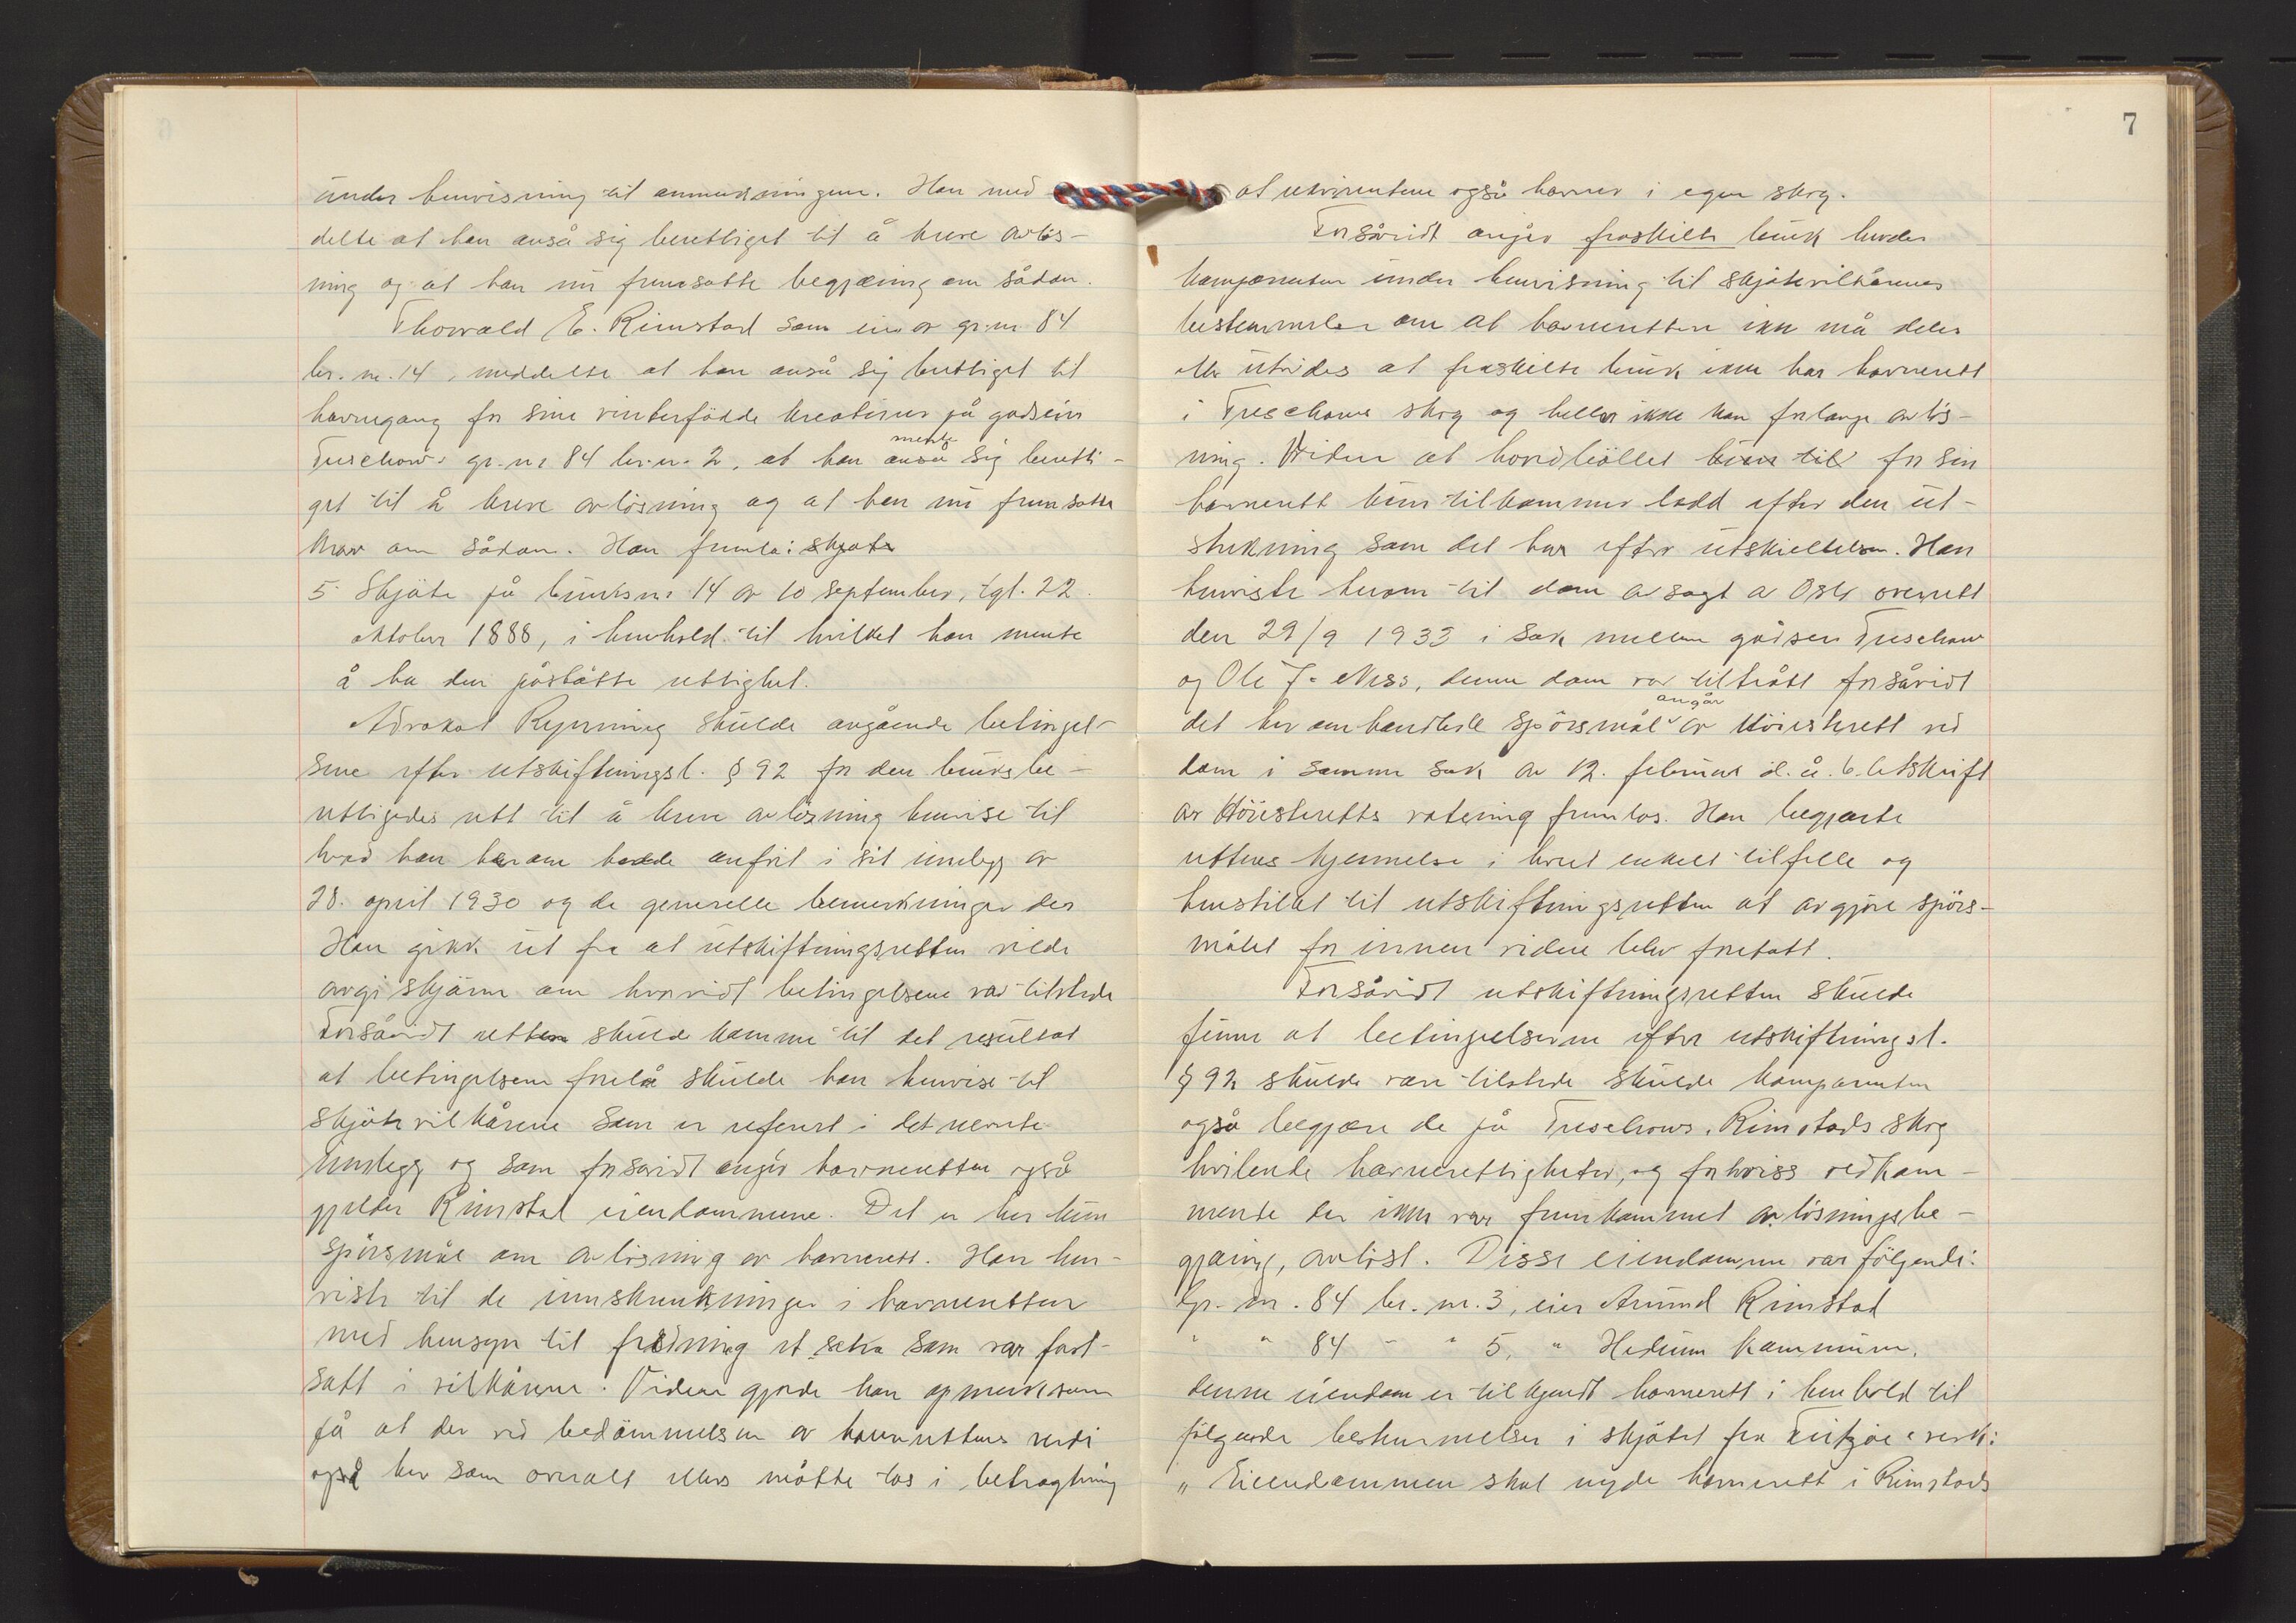 under henvisning til anmerkningene. Han med-
delte at han anså sig berettiget til å kreve avløs-
ning og at han nu fremsatte begjæring om sådan.
Thorvald E. Rimstad som eier av gr.nr. 84
br. nr. 14, meddelte at han anså sig berettiget til
havnegang for sine vinterfødde kreaturer på godseier
Treschows gr. nr 84 br. nr. 2, at han anså mente sig beretti-
get til å kreve avløsning og at han nu fremsatte
krav om sådan. Han fremla: skjøte
5 Skjøte på bruksnr 14 av 10 september, tgl. 22.
oktober 1888, i henhold til hvilket han mente
å ha den påståtte rettighet.
Advokat Ryerning skulde angående betingel-
sene efter utskiftningsl. § 92 for den bruksbe-
rettigedes rett til å kreve avløsning henvise til
hvad han herom hadde anført i sit innlegg av
28. april 1930 og de generelle bemerkninger der
Han gikk ut fra at utskiftningsretten vilde
avgi skjønn om hvorvidt betingelsene var tilstede
Forsåvidt retten skulde komme til det resultat
at betingelsene forelå skulde han henvise til
skjøtevilkårene som er referert i det nevnte
innlegg og som forsåvidt angår havneretten også
gjelder Rimstad eiendommene. Det er her kun
spørsmål om avløsning av havnerett. Han hen-
viste til de innskrenkninger i havneretten
med hensyn til fredning et setra som var fast-
satt i vilkårene. Videre gjorde han opmerksom
på at der ved bedømmelsen av havnerettens verdi
også her som overalt ellers måtte tas i betragtning
7
at rekvirentene også havner i egen skog.
Forsåvidt angår fraskilte bruk hevder
komparenten under henvisning til skjøtevilkårenes
bestemmelser om at havneretten ikke må deles
eller utvides at fraskilte bruk ikke har havnerett
i Treschows skog og heller ikke kan forlange avløs-
ning. Videre at hovedbøllet kun til for sin
havnerett kun tilkommer ladd efter den ut-
strekning som det har efter utskillelsen. Han
henviste herom til dom avsagt av Oslo overrett
den 29/9 1933 i sak mellem godseier Treschow
og Ole J. Ness, denne dom var tiltrått forsåvidt
det her omhandlede spørsmål angår av Høiesterett ved
dom i samme sak av 12. februar d. å. 6. Utskrift
av Høiesteretts votering fremlas. Han begjærte
rettens kjennelse i hvert enkelt tilfelle og
henstillet til utskiftningsretten at avgjøre spørs-
målet før innen videre blev foretatt.
Forsåvidt utskiftningsretten skulde
finne at betingelserne efter utskiftningsl.
§ 92 skulde være tilstede skulde komparenten
også begjære de på Treschows, Rimstads skog
hvilende havnerettigheter, og forhviss vedkom-
mende der ikke var fremkommet avløsningsbe-
gjæring, avløst. Disse eiendomme var følgende:
Gr. nr. 84 br. nr. 3, eier Amund Rimstad
" " 84 - " 5, " Hedrum kommune,
denne eiendom er tilkjendt havnerett i henhold til
følgende bestemmelser i skjøtet fra Fritzøe verk:
„Eiendommen skal nyde havnerett i Rimstads